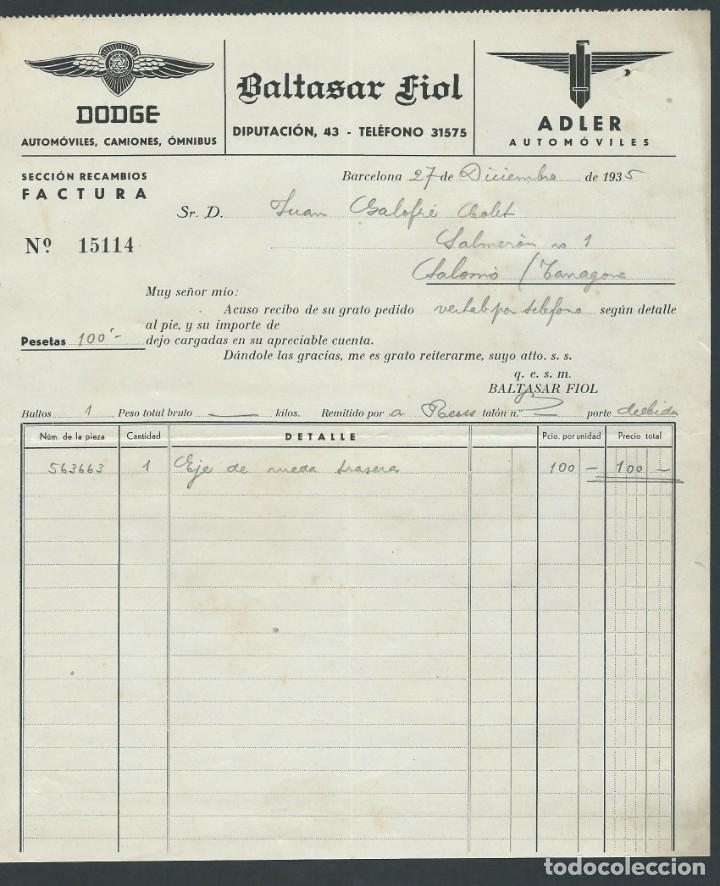 DODGE
AUTOMÓVILES, CAMIONES, ÓMNIBUS
Baltasar Fiol
DIPUTACIÓN, 43 - TELÉFONO 31575
ADLER
AUTOMÓVILES
SECCIÓN RECAMBIOS
FACTURA
Nº 15114
Barcelona 27 de Diciembre de 1935
Sr. D. Juan Galofré
Salmerón nº 1
Salomó / Tarragona
Muy señor mio:
Acuso recibo de su grato pedido verbal por teléfono según detalle
al pie, y su importe de
Pesetas 100'- dejo cargadas en su apreciable cuenta.
Dándole las gracias, me es grato reiterarme, suyo atto. s. s.
q. e. s. m.
BALTASAR FIOL
Bultos 1 Peso total bruto — kilos. Remitido por a Reus talón n.º porte debido
Núm. de la pieza Cantidad DETALLE Pcio. por unidad Precio total
563663 1 Eje de rueda trasera 100 — 100 —
todocoleccion